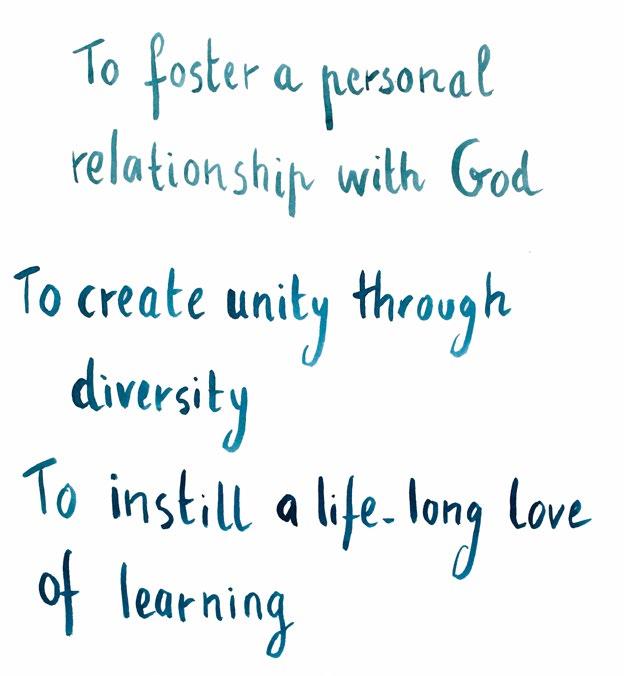 To foster a personal
relationship with God
To create unity through
diversity
To instill a life-long love
of learning